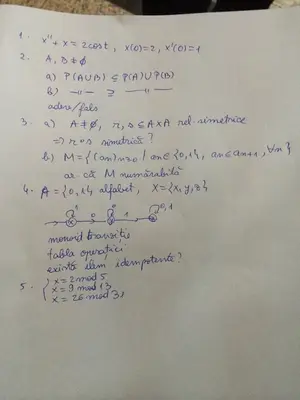 1. x''+x = 2cost, x(0)=2, x'(0)=1
2. A, B ≠ ∅
a) P(A∪B) ⊆ P(A)∪P(B)
b) —"— ⊇ —"—
adev/fals
3. a) A≠∅, r, s ⊆ A×A rel. simetrice
⇒ r∘s simetrică?
b) M = {(an)n≥0 | an∈{0,1}, an≤an+1, ∀n}
as. că M numărabilă
4. A = {0,1} alfabet, X = {x,y,z}
1 0 1 0,1
x y z
monoid tranziții
tabla operației
există elem idempotente?
5. { x = 2 mod 5
x = 9 mod 13
x = 26 mod 31